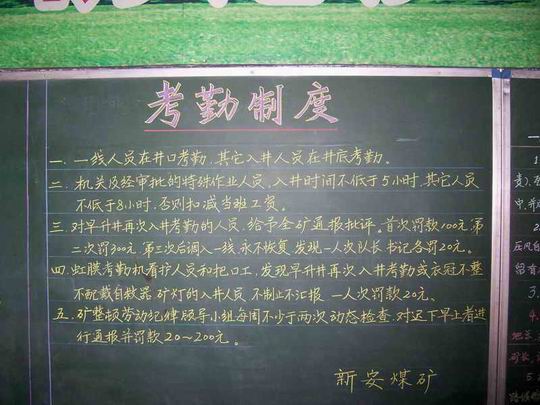 考勤制度
一. 一线人员在井口考勤，其它入井人员在井底考勤。
二. 机关及经审批的特殊作业人员，入井时间不低于5小时，其它人员
不低于8小时，否则扣减当班工资。
三. 对早升井再次入井考勤的人员，给予全矿通报批评。首次罚款100元，第
二次罚300元，第三次后调入一线，永不恢复，发现一人次队长书记各罚20元。
四. 虹膜考勤机看护人员和把口工，发现早升井再次入井考勤或衣冠不整
不配戴自救器、矿灯的入井人员，不制止不汇报，一人次罚款20元。
五. 矿整顿劳动纪律领导小组每周不少于两次动态检查，对迟下早上者进
行通报并罚款20～200元。
新安煤矿